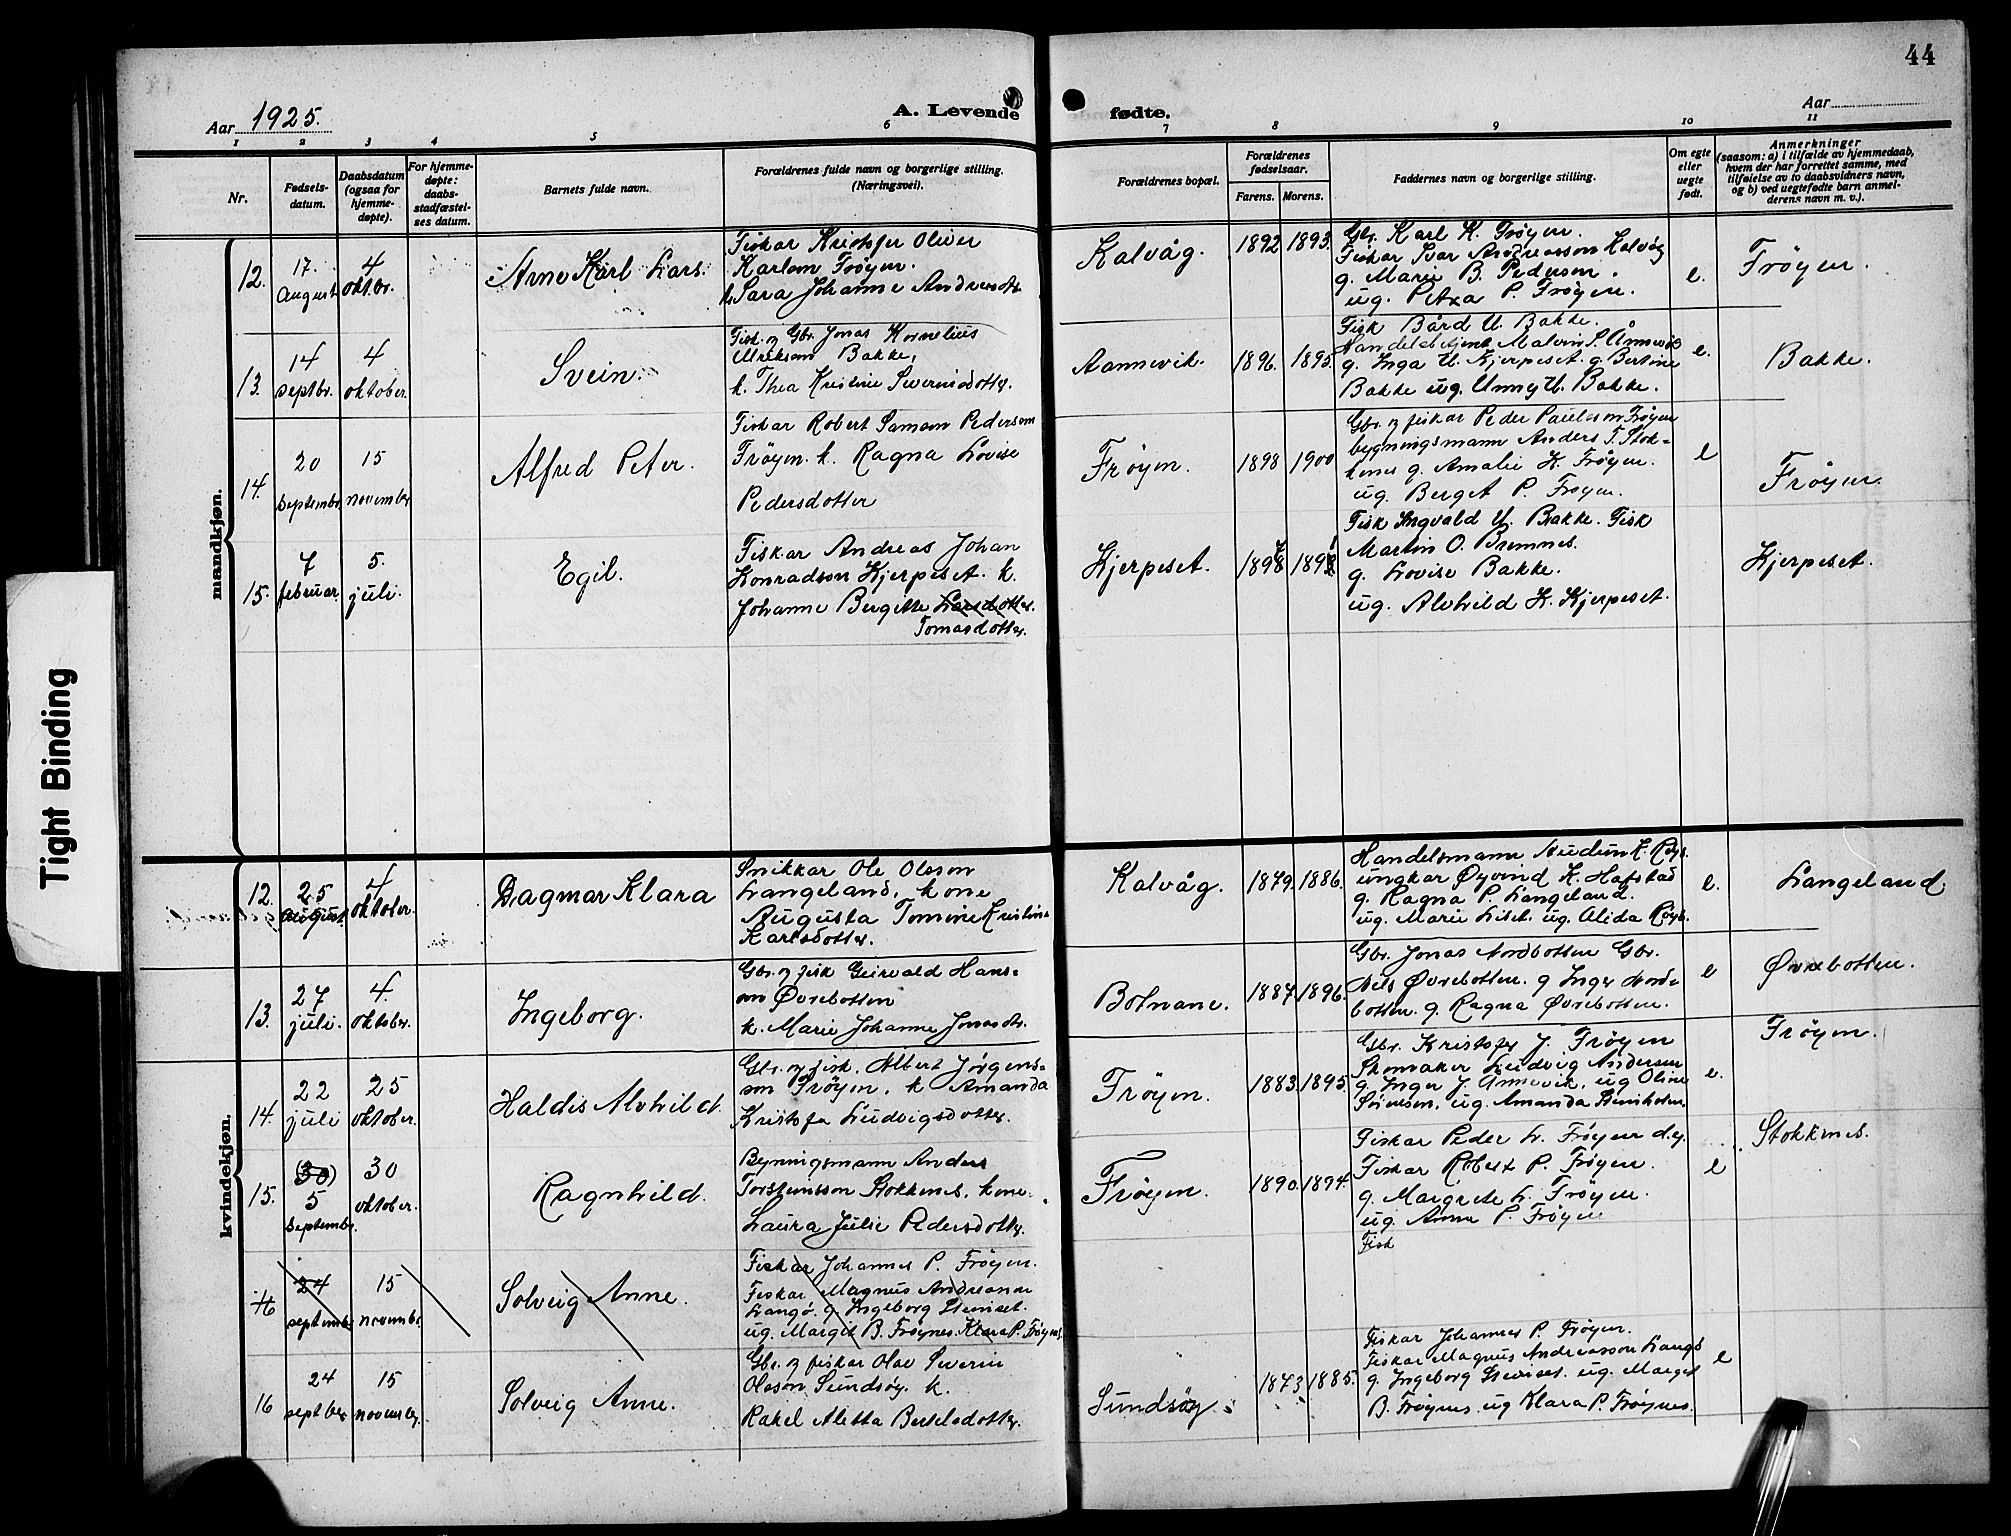 44
Aar 1925.
A. Levende fødte.
Aar
1 2 3 4 5 6 7 8 9 10 11
Nr.
Fødsels-
datum.
Daabsdatum
(ogsaa for
hjemme-
døpte).
For hjemme-
døpte:
daabs-
stadfæstel-
ses datum.
Barnets fulde navn.
Forældrenes fulde navn og borgerlige stilling.
(Næringsvei).
Forældrenes bopæl.
Forældrenes
fødselsaar.
Farens. Morens.
Faddernes navn og borgerlige stilling.
Om egte
eller
uegte
født.
Anmerkninger
(saasom: a) i tilfælde av hjemmedaab,
hvem der har forrettet samme, med
tilføielse av to daabsvidners navn,
og b) ved uegtefødte barn anmel-
derens navn m. v.).
mandkjøn.
12.
17.
August
4
oktbr.
Arne Karl Lars.
Fiskar Kristofer Oliver
Karlson Frøyen.
k. Sara Johanne Andreasdtr.
Kalvåg.
1892 1893.
Gbr. Karl K. Frøyen.
Fiskar Ivar Andreasson Kalvåg
g. Marie B. Pedersen.
ug. Petra P. Frøyen.
e.
Frøyen.
13.
14
septbr.
4
oktober.
Svein.
Fisk. og Gbr. Jonas Kornelius
Ulrikson Bakke,
k. Thea Kristine Severinsdotter.
Aannevik.
1896. 1895.
Fisk Bård U. Bakke.
Handelsbetjent Malvin S. Ånnevik
g. Inga U. Kjerpeset. g. Bertine
Bakke ug. Unny U. Bakke.
e.
Bakke.
14.
20
Septembr.
15
november
Alfred Peter.
Fiskar Robert Samson Pederson
Frøyen. k. Ragna Lovise
Pedersdotter
Frøyen.
1898 1900
Gbr. og fiskar Peder Paulsson Frøyen
bygningsmann Anders T. Stok-
kenes g. Amalie K. Frøyen.
ug. Berget P. Frøyen.
e
Frøyen.
15.
7
februar
5.
juli.
Egil.
Fiskar Andreas Johan
Konradson Kjerpeset. k.
Johanne Bergitte Larsdotter.
Tomasdotter.
Kjerpeset.
Fisk Ingvald U. Bakke. Fisk
Martin O. Bremnes.
g. Lovise Bakke.
ug. Alvhild K. Kjerpeset.
Kjerpeset.
kvindekjøn.
12.
25
august.
4
oktober.
Dagmar Klara
Snikkar Ole Olsson
Langeland, kone
Augusta Tomine Kristine
Karlsdotter.
Kalvåg.
1879. 1886.
Handelsmann Audun K.
ungkar Øyvind K. Hafstad
g. Ragna P. Langeland.
ug. Marie Liset. ug. Alida
e.
Langeland
13.
27
juli.
4.
oktober.
Ingeborg.
Gbr. og fisk Geirvald Hans-
son Øvrebotten
k. Marie Johanne Jonasdtr.
Botnane.
1887. 1896.
Gbr. Jonas Nordbotten Gbr.
Nils Øvrebotten. g Inger Nord-
botten. g. Ragna Øvrebotten.
e
Øvrebotten.
14.
22
juli
25
oktober.
Haldis Alvhild.
Gbr. og fisk. Albert Jørgens-
son Frøyen, k Amanda
Kristofa Ludvigsdotter.
Frøyen.
1883. 1895.
Gbr. Kristofer J. Frøyen
Skomaker Ludvig Andersen
g. Inger J. Ånnevik, ug Oline
Sørensen. ug. Amanda Steinholm.
e.
Frøyen.
15.
(30)
5
Septembr.
30
oktober.
Ragnhild.
Bynningsmann Anders
Torsteinsson Stokkenes. kone
Laura Julie Pedersdotter.
Frøyen.
1890. 1894.
Fiskar Peder L. Frøyen d.y.
Fiskar Robert P. Frøyen.
g. Margrete L. Frøyen.
ug. Anna P. Frøyen
e
Stokkenes.
16
24
septembr
15
novembr.
Solveig Anne.
Fiskar Johannes P. Frøyen.
Fiskar Magnus Andreasson
Langø. g. Ingeborg Steinset.
ug. Margit B. Frøynes. Klara P. Frøynes.
Fisk
16
24
septber
15
november.
Solveig Anne.
Gbr. og fiskar Olav Severin
Olsson Sundsøy. k.
Rakel Aletta Bertelsdotter.
Sundsøy.
1873 1885.
Fiskar Johannes P. Frøyen.
Fiskar Magnus Andreasson Langø
g. Ingeborg Steinset. ug. Marget
B. Frøynes. ug Klara P. Frøynes.
e
Tight Binding